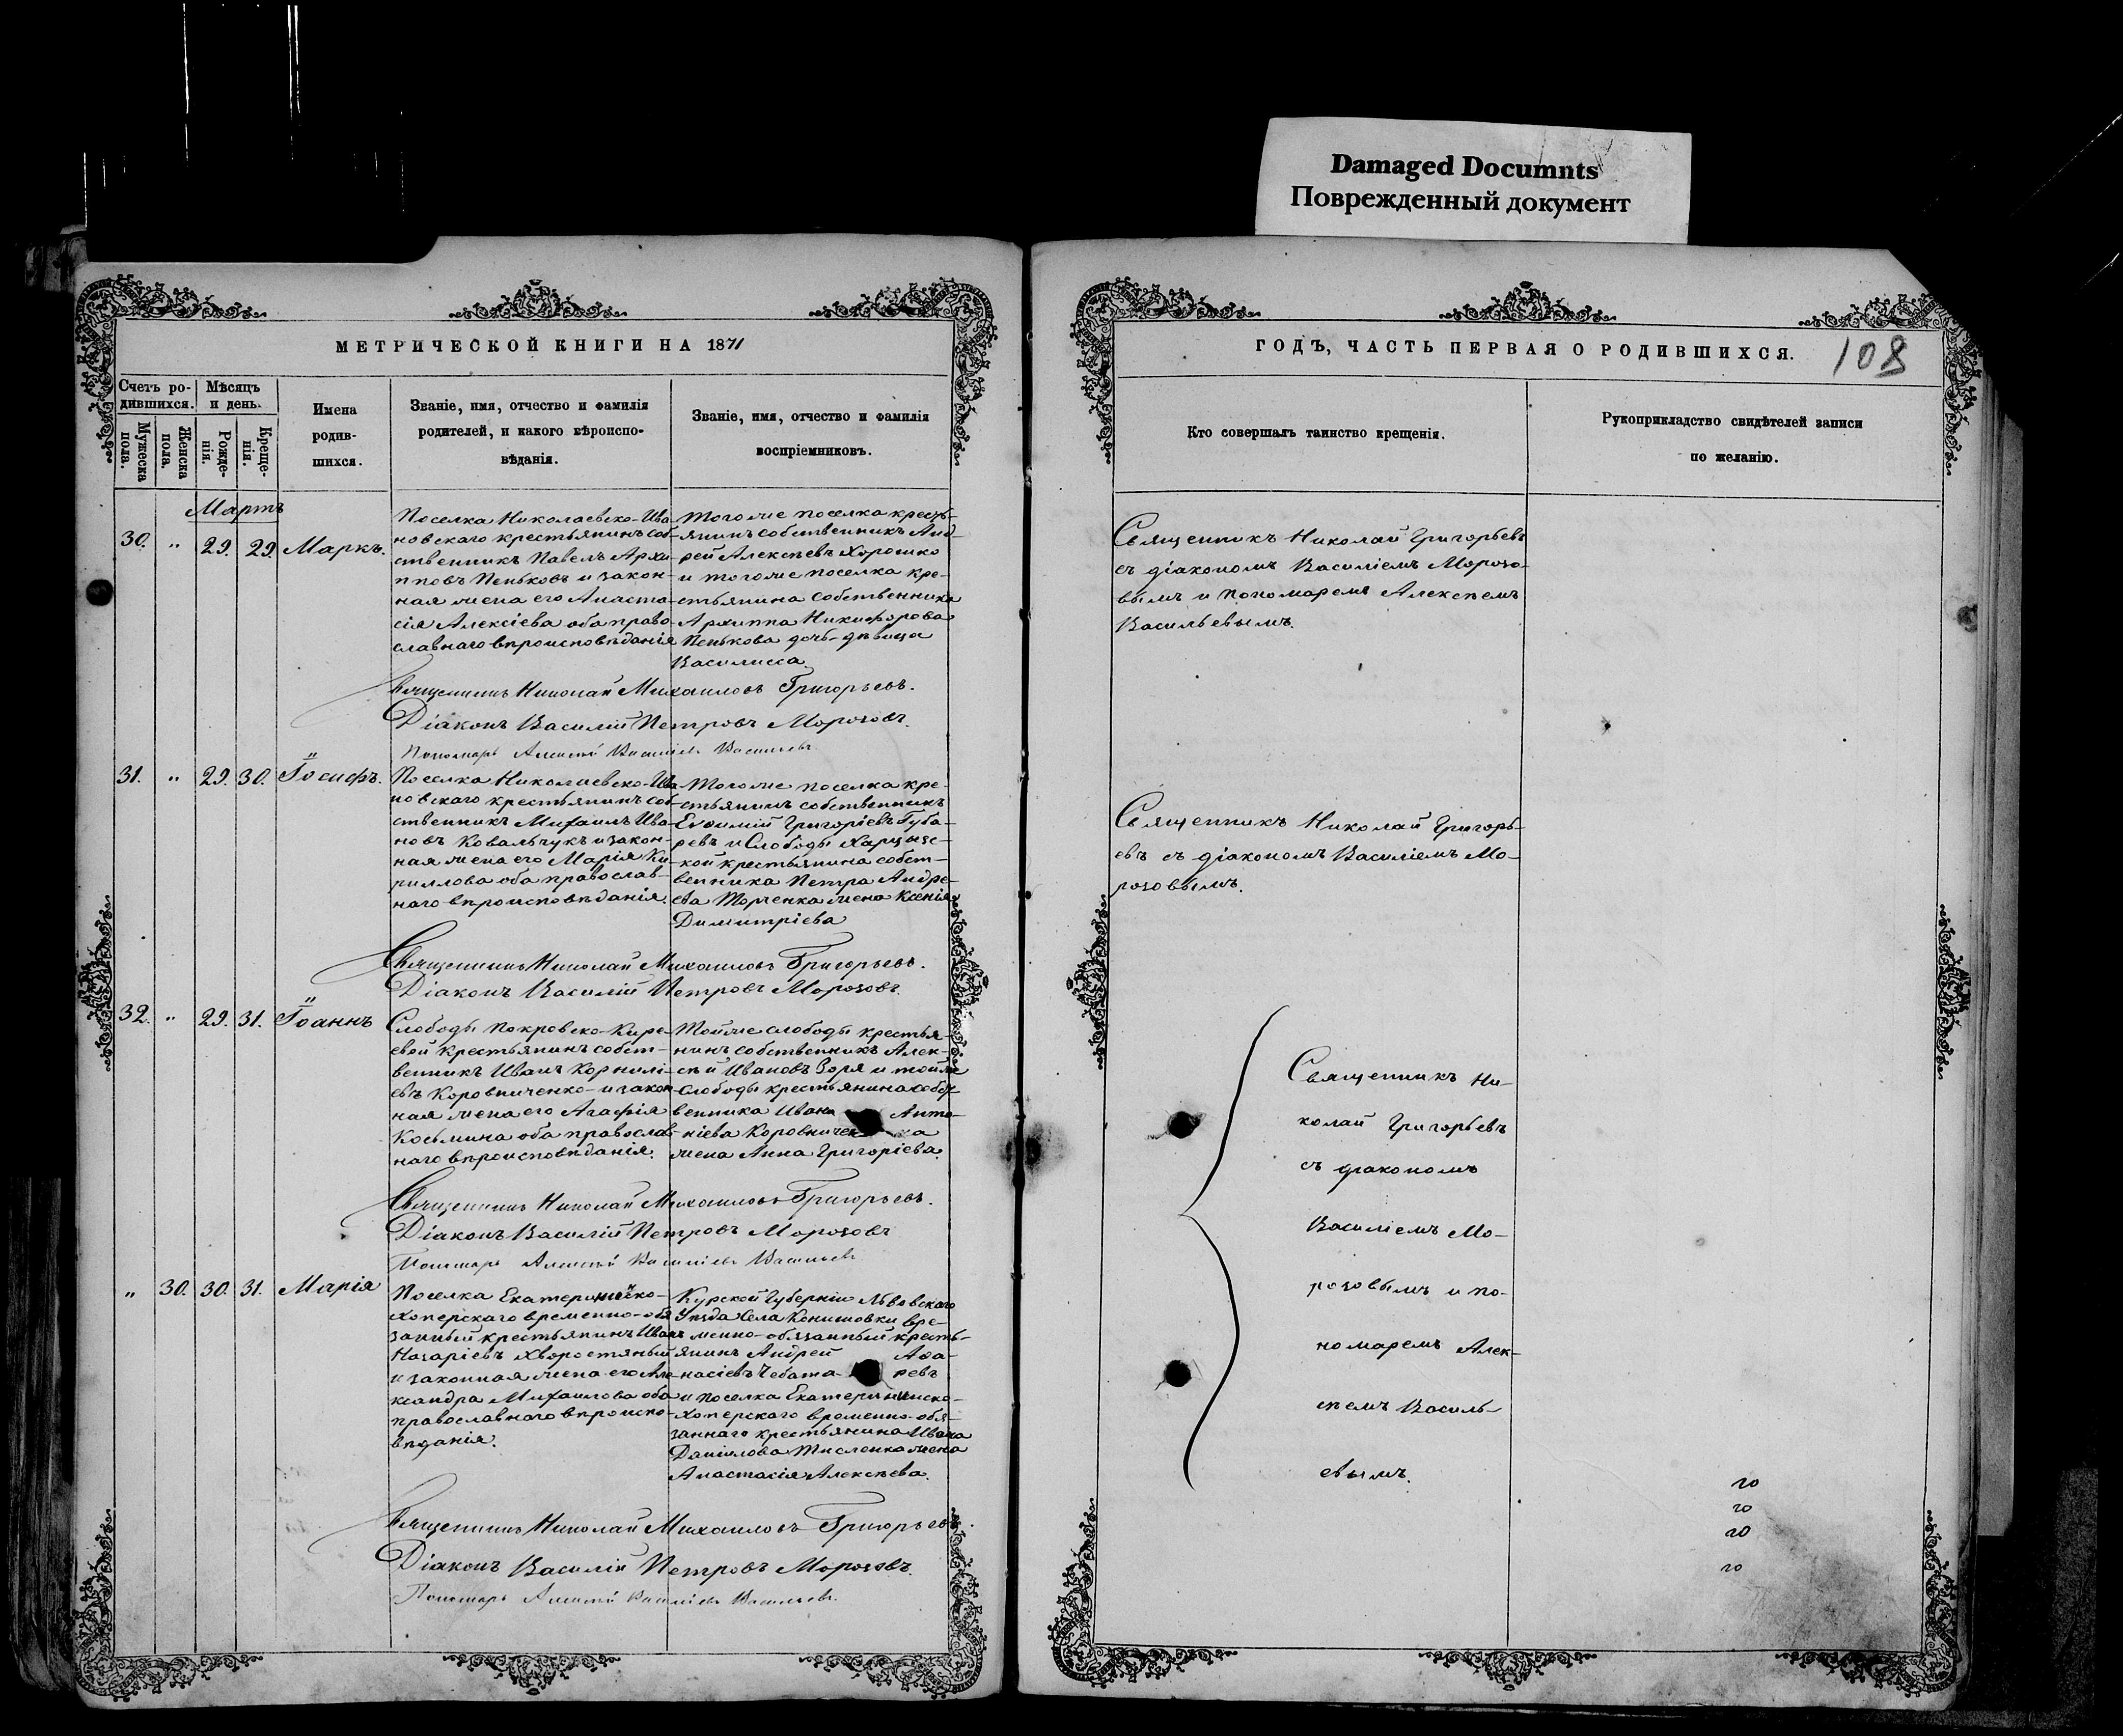 Damaged Documnts
Поврежденный документ
МЕТРИЧЕСКОЙ КНИГИ НА 1871
Счетъ ро-
дившихся.
Мѣсяцъ
и день.
Мужеска
пола.
Женска
пола.
Рожде-
нія.
Креще-
нія.
Имена
родив-
шихся.
Званіе, имя, отчество и фамилія
родителей, и какого вѣроиспо-
вѣданія.
Званіе, имя, отчество и фамилія
воспріемниковъ.
Мартъ
30. " 29. 29. Маркъ.
Поселка Николаевско-Ива-
новскаго крестьянинъ соб-
ственникъ Павелъ Архи-
пповъ Пеньковъ и закон-
ная жена его Анаста-
сія Алексіева оба право-
славнаго вѣроисповѣданія
Тогоже поселка кресть-
янинъ собственникъ Анд-
рей Алексѣевъ Хорошко
и тогоже поселка кре-
стьянина собственника
Архиппа Никифорова
Пенькова дочь-дѣвица
Василисса.
Священникъ Николай Михаиловъ Григорьевъ.
Діаконъ Василій Петровъ Морозовъ.
Пономарь Алексѣй Васильевъ Васильевъ
31. " 29. 30. Іосифъ.
Поселка Николаевско-Ива-
новскаго крестьянинъ соб-
ственникъ Михаилъ Ива-
новъ Ковальчукъ и закон-
ная жена его Марія Ки-
риллова оба православ-
наго вѣроисповѣданія.
Тогоже поселка кре-
стьянинъ собственникъ
Евѳимій Григоріевъ Губа-
ревъ и Слободы Харцыз-
кой крестьянина собст-
венника Петра Андре-
ева Торченка жена Ксенія
Димитріева
Священникъ Николай Михаиловъ Григорьевъ.
Діаконъ Василій Петровъ Морозовъ.
32. " 29. 31. Іоаннъ
Слободы Покровско-Кире-
евой крестьянинъ собст-
венникъ Иванъ Корнилі-
евъ Коровниченко и закон-
ная жена его Агафія
Косьмина оба православ-
наго вѣроисповѣданія.
Тойже слободы крестья-
нинъ собственникъ Алек-
сѣй Ивановъ Зоря и тойже
слободы крестьянина собст-
венника Ивана Анто-
ніева Коровничен ка
жена Анна Григоріева.
Священникъ Николай Михаиловъ Григорьевъ.
Діаконъ Василій Петровъ Морозовъ
Пономарь Алексѣй Васильевъ Васильевъ
" 30. 30. 31. Марія
Поселка Екатерининско-
Хоперскаго временно-обя-
занный крестьянинъ Иванъ
Назаріевъ Хворостяный
и законная жена его Але-
ксандра Михаилова оба
православнаго вѣроиспо-
вѣданія.
Курской Губерніи Льговскаго
Уѣзда Села Конышовки вре-
менно-обязанный кресть-
янинъ Андрей Аѳа-
насіевъ Чебата ревъ
и поселка Екатерининско-
Хоперскаго временно-обя-
заннаго крестьянина Ивана
Даніилова Тисленка жена
Анастасія Алексѣева.
Священникъ Николай Михаиловъ Григорьевъ.
Діаконъ Василій Петровъ Морозовъ.
Пономарь Алексѣй Васильевъ Васильевъ.
ГОДЪ, ЧАСТЬ ПЕРВАЯ О РОДИВШИХСЯ.
108
Кто совершалъ таинство крещенія.
Рукоприкладство свидѣтелей записи
по желанію.
Священникъ Николай Григорьевъ
съ діакономъ Василіемъ Морозо-
вымъ и пономаремъ Алексѣемъ
Васильевымъ.
Священникъ Николай Григорь-
евъ съ діакономъ Василіемъ Мо-
розовымъ.
Священникъ Ни-
колай Григорьевъ
съ діакономъ
Василіемъ Мо-
розовымъ и по-
номаремъ Алек-
сѣемъ Василь-
евымъ.
го
го
го
го